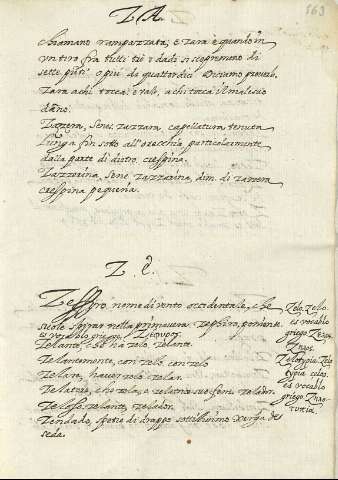 Z A.
563
chiamano rampazzata; e zara è quando in
un tiro fra tutti tre i dadi si scopreno di
sette più o più di quattordici
zara a chi tocca: è tale, a chi tocca s'ha
danno.
Zazzera, Sene. zazzara capellatura tenuta
lunga fin sotto all'orecchia, particolarmente
dalla parte di dietro, crespina.
Zazzerina, Sene. zazzarina, dim. di zazzera
crespina pequeña.
Z. E.
Zeffiro, nome di vento occidentale, che
suole spirar nella primavera. zephiro, poniente.
es vocablo griego.
Zelante, ch'ha zelo. zelante.
Zelantemente, con zelo. con zelo
Zelare, haver zelo. zelar.
Zelatore, che zela, e zelatrice suo fem. zelador.
Zeloso, zelante, zelador.
Zendado, spetie di drappo sottilissimo. xerga de
seda.
Zelo, zelo.
es vocablo
griego
Zelotypia, Zelo
typia, celos.
es vocablo
griego.